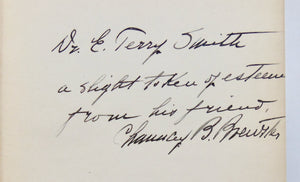 Dr. E. Terry Smith
a slight token of esteem
from his friend,
Chauncey B. Brewster